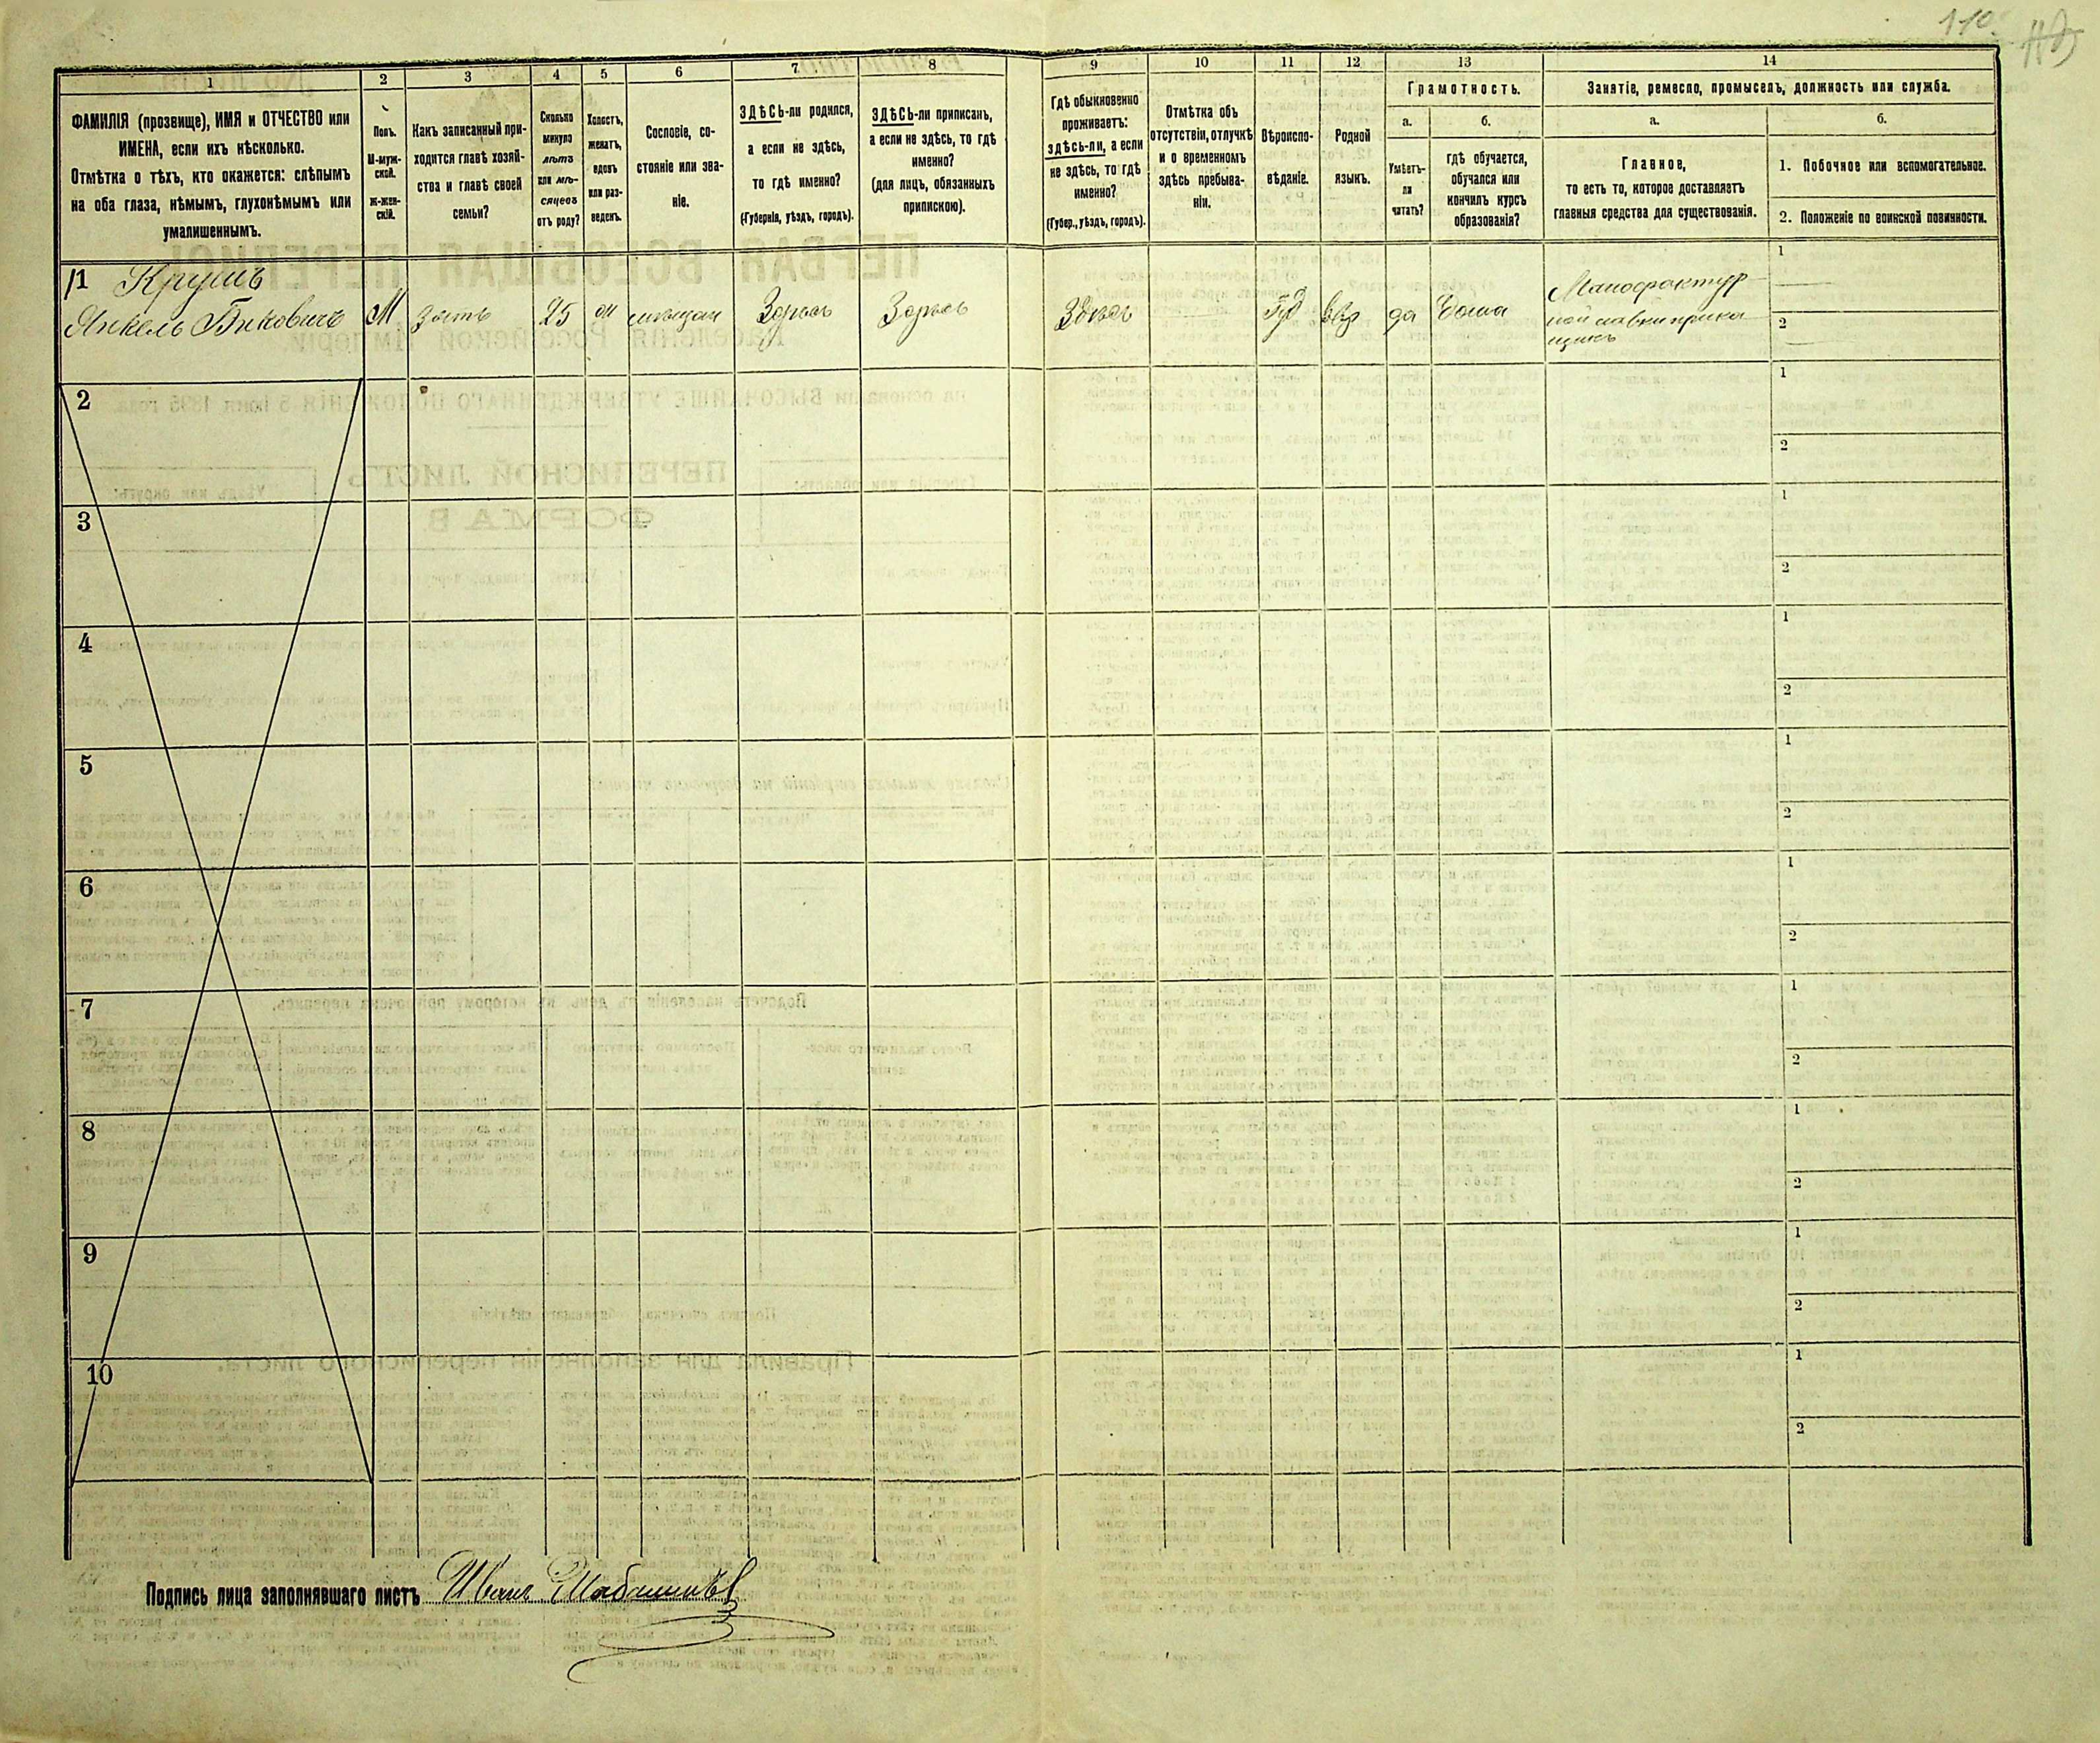 110.
1
2
3
4
5
6
7
8
9
10
11
12
13
14
ФАМИЛІЯ (прозвище), ИМЯ и ОТЧЕСТВО или
ИМЕНА, если ихъ нѣсколько.
Отмѣтка о тѣхъ, кто окажется: слѣпымъ
на оба глаза, нѣмымъ, глухонѣмымъ или
умалишеннымъ.
Полъ.
М-муж-
ской.
ж-жен-
скій.
Какъ записанный при-
ходится главѣ хозяй-
ства и главѣ своей
семьи?
Сколько
минуло
лѣтъ
или мѣ-
сяцевъ
отъ роду?
Холостъ,
женатъ,
вдовъ
или раз-
веденъ.
Сословіе, со-
стояніе или зва-
ніе.
ЗДѢСЬ-ли родился,
а если не здѣсь,
то гдѣ именно?
(Губернія, уѣздъ, городъ).
ЗДѢСЬ-ли приписанъ,
а если не здѣсь, то гдѣ
именно?
(для лицъ, обязанныхъ
припискою).
Гдѣ обыкновенно
проживаетъ:
здѣсь-ли, а если
не здѣсь, то гдѣ
именно?
(Губер., уѣздъ, городъ).
Отмѣтка объ
отсутствіи, отлучкѣ
и о временномъ
здѣсь пребыва-
ніи.
Вѣроиспо-
вѣданіе.
Родной
языкъ.
Грамотность.
а.
Умѣетъ-
ли
читать?
б.
гдѣ обучается,
обучался или
кончилъ курсъ
образованія?
Занятіе, ремесло, промыселъ, должность или служба.
а.
Главное,
то есть то, которое доставляетъ
главныя средства для существованія.
б.
1. Побочное или вспомогательное.
2. Положеніе по воинской повинности.
1 Крушъ
Янкель Бѣковичъ М зять 25 мѣщан Здѣсь Здѣсь Здѣсь Іуд Евр да Дома
Манофактур
ной лавки прика
щикъ
1
2
2
1
2
3
1
2
4
1
2
5
1
2
6
1
2
7
1
2
8
1
2
9
1
2
10
1
2
Подпись лица заполнявшаго листъ Иванъ